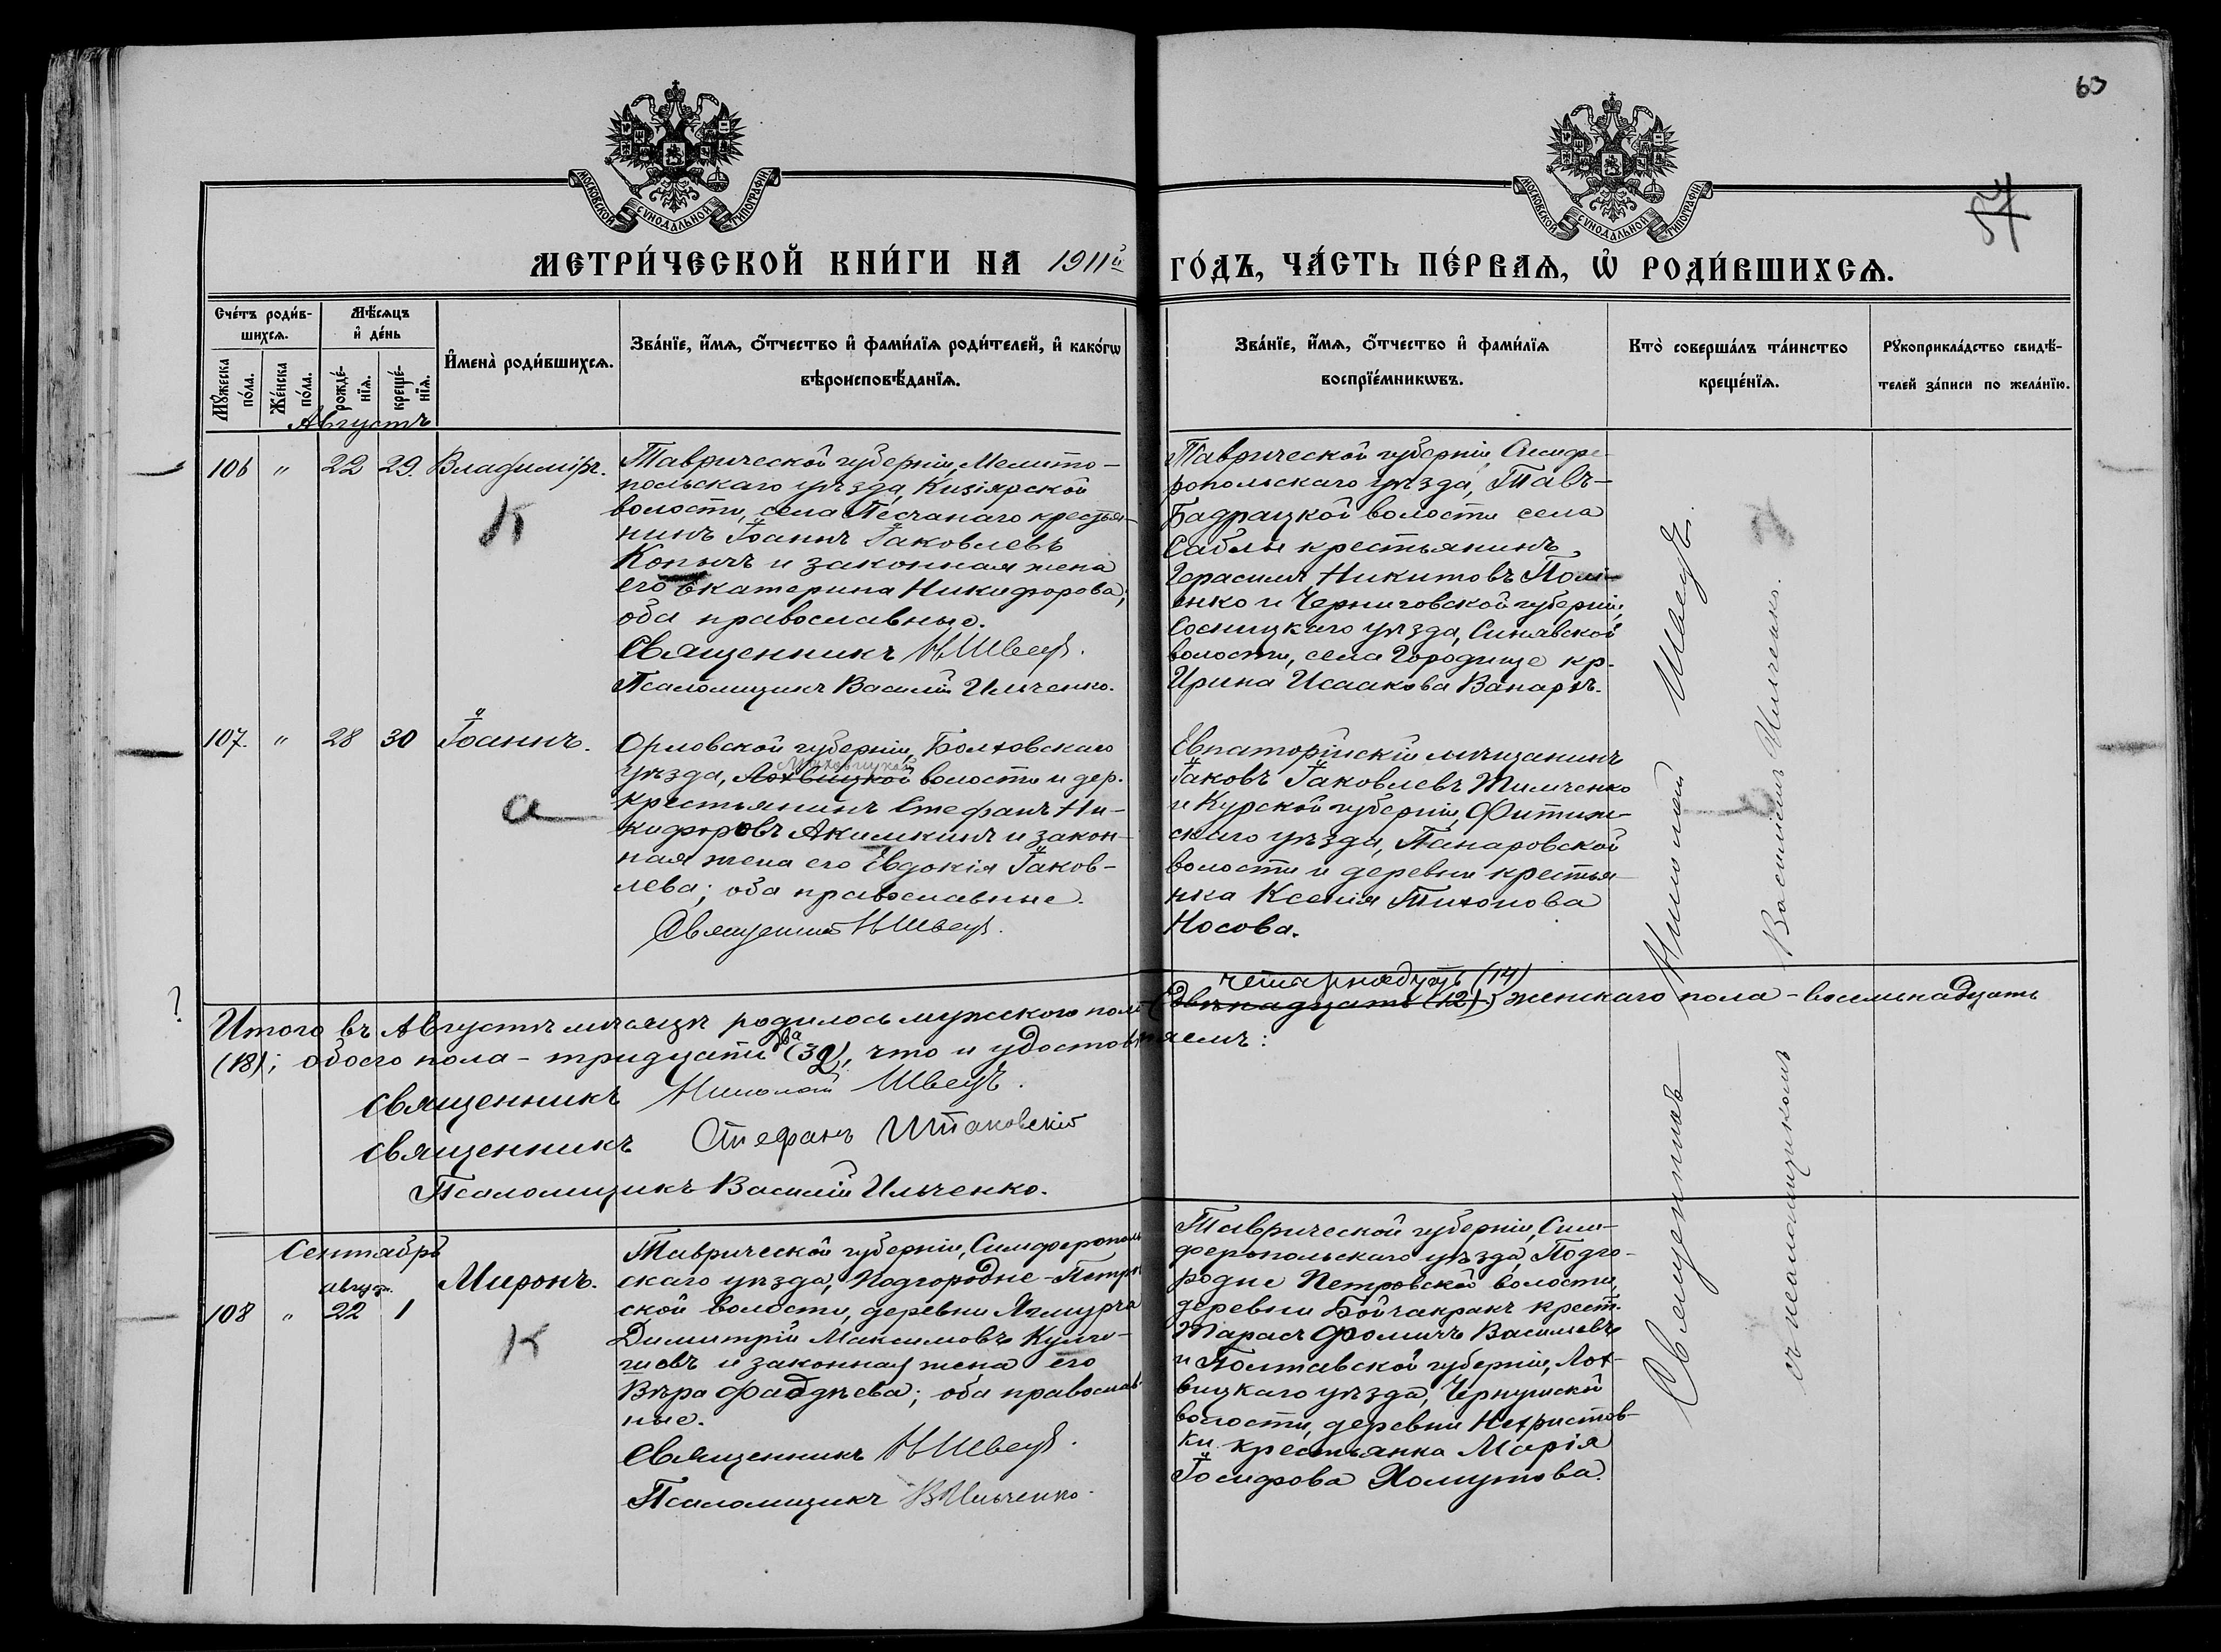 63
57
МОСКОВСКОЙ СѴНОДАЛЬНОЙ ТИПОГРАФІИ
МОСКОВСКОЙ СѴНОДАЛЬНОЙ ТИПОГРАФІИ
МЕТРИ́ЧЕСКОЙ КНИ́ГИ НА 1911й ГО́ДЪ, ЧА́СТЬ ПЕ́РВАѦ, Ѡ҆ РОДИ́ВШИХСѦ.
Сче́тъ роди́в-
шихсѧ.
Мꙋ́жеска по́ла.
Же́нска по́ла.
Мѣ́сѧцъ
и҆ де́нь
рожде́-
нїѧ.
креще́-
нїѧ.
И҆мена̀ роди́вшихсѧ.
Зва́нїе, и҆́мѧ, ѻ҆́тчество и҆ фами́лїѧ роди́телей, и҆ како́гѡ
вѣроисповѣ́данїѧ.
Зва́нїе, и҆́мѧ, ѻ҆́тчество и҆ фами́лїѧ
воспрїе́мникѡвъ.
Кто̀ соверша́лъ та́инство
креще́нїѧ.
Рꙋкоприкла́дство свидѣ́-
телей за́писи по жела́нїю.
Августъ
106 " 22 29. Владиміръ.
К
Таврической губерніи, Мелито-
польскаго уѣзда, Кизіярской
волости, села Песчанаго крестья-
нинъ Іоаннъ Іаковлевъ
Копычъ и законная жена
его Екатерина Никифорова;
оба православные.
Священникъ Н Швецъ.
Псаломщикъ Василій Ильченко.
Таврической губерніи, Симфе-
ропольскаго уѣзда, Тавъ-
Бадрацкой волости села
Саблы крестьянинъ
Герасимъ Никитовъ
енко и Черниговской губерніи,
Сосницкаго уѣзда, Синявской
волости, села Городище кр.
Ирина Исаакова
107. " 28 30 Іоаннъ.
а
Орловской губерніи, Болховскаго
уѣзда, Лохвицкой волости и дер.
крестьянинъ Стефанъ Ни-
кифоровъ Акимкинъ и закон-
ная жена его Евдокія Іаков-
лева; оба православные.
Священникъ Н Швецъ.
Евпаторійскій мѣщанинъ
Іаковъ Іаковлевъ Тимченко
и Курской губерніи,
скаго уѣзда, Панаровской
волости и деревни крестья-
нка Ксенія Тихонова
Носова.
?
четырнадцать (14)
Итого въ Августѣ мѣсяцѣ родилось мужского пола (двѣнадцать (12)), женскаго пола - восемнадцать
(18); обоего пола - тридцати два (32), что и удостовѣряемъ:
Священникъ Николай Швецъ.
Священникъ Стефанъ
Псаломщикъ Василій Ильченко.
Сентябрь
август.
108 " 22 1 Миронъ.
К
Таврической губерніи, Симферополь
скаго уѣзда, Подгородне-Петров
ской волости, деревни
Димитрій Максимовъ
и законная жена его
Вѣра Фаддѣева; оба православ-
ные.
Священникъ Н Швецъ.
Псаломщикъ В Ильченко.
Таврической губерніи, Сим-
феропольскаго уѣзда, Подго-
родне Петровской волости,
деревни крест.
Тарасъ Фомичъ Васильевъ
и Полтавской губерніи, Лох-
вицкаго уѣзда,
волости, деревни Нехристов-
ки крестьянка Марія
Іосифова Хомутова.
Священникъ Николай Швецъ.
съ псаломщикомъ Василіемъ Ильченко.